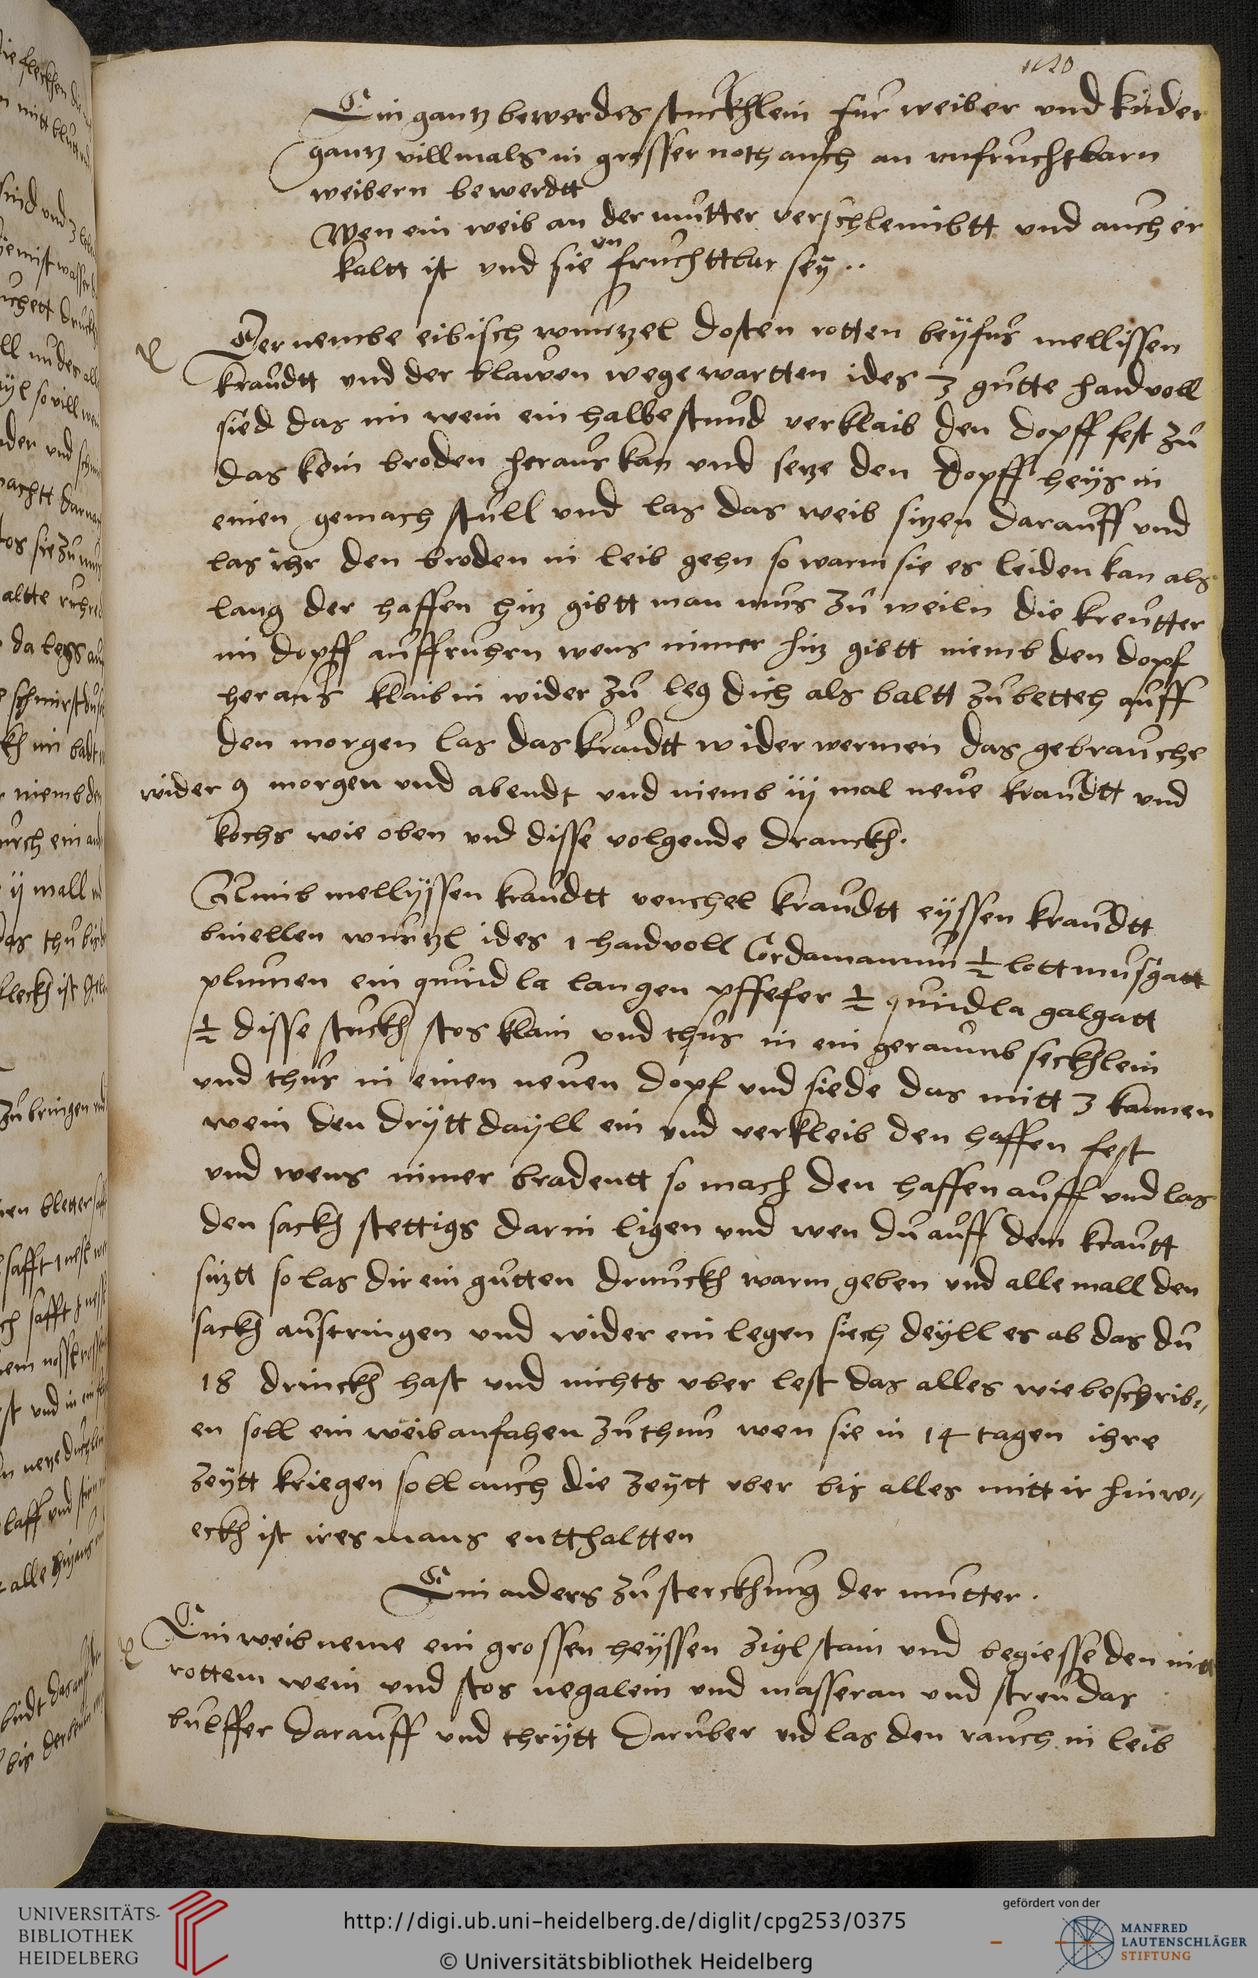 120
Ein gantz bewerdes stuckhlein fur weiber und kinder
gantz villmals in grosser noth auch an unfruchtbarn
weibern bewerdtt
Wen ein weib an der mutter verschleimbtt und auch er
kaltt ist und sie un fruchttbar sey ..
Der nembe eibisch wurtzel dosten rotten beyfus mellissen
kraudtt und der blawen wegewartten ides 3 gutte handvoll
sied das in wein ein halbe stund verklaib den dopff fest zu
das kein broden heraus kan und setze den dopff heys in
einen gemach stull und las das weib sitzen darauff und
las ihr den broden in leib gehn so warm sie es leiden kan als
lang der haffen hitz gibtt man mus zu weiln die kreutter
im dopff auffruhrn wens nimer hitz gibtt niemb den dopf
heraus klaib in wider zu leg dich als baltt zu betteh auff
den morgen las das kraudtt wider wermen das gebrauche
wider 9 morgen und abendt und niemb iij mal neue kraudtt und
kochs wie oben und disse volgende dranckh.
Nimb mellyssen kraudtt venchel kraudtt eyssen kraudtt
binellen wurtzl ides 1 handvoll Cordamamum ½ lott musgatt
plumen ein quindla langen pffefer ½ quindla galgatt
½ disse stuckh stos klain und thus in ein geraumb seckhlein
und thus in einen neuen dopf und siede das mitt 3 kannen
wein den drytt dayll ein und verkleib den haffen fest
und wens nimer bradentt so mach den haffen auff und las
den sackh stettigs darin ligen und wen du auff dem krautt
sitztt so las dir ein gutten drunckh warm geben und alle mall den
sackh austringen und wider ein legen siech deyll es ab das du
18 drinckh hast und nichts uber lest das alles wie beschrib„
en soll ein weib anfahen zu thun wen sie in 14 tagen ihre
zeytt kriegen soll auch die zeytt uber bis alles mitt ir hinw„
eckh ist ires mans entthaltten
Ein anders zu sterckhung der mutter.
Ein weib neme ein grossen heyssen ziglstain und begiesse den mitt
rottem wein und stos negalein und masseran und streu das
bulffer darauff und thrytt daruber und las den rauch in leib
UNIVERSITÄTS-
BIBLIOTHEK
HEIDELBERG
http://digi.ub.uni-heidelberg.de/diglit/cpg253/0375
© Universitätsbibliothek Heidelberg
gefördert von der
MANFRED
LAUTENSCHLÄGER
STIFTUNG